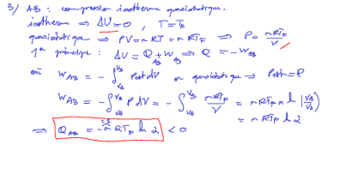 3) AB : compression isotherme quasistatique.
isotherme ⇒ ΔU = 0, T = T_F
quasistatique ⇒ PV = nRT = nRT_F ⇒ P = nRT_F/V
1er principe : ΔU = Q_AB + W_AB ⇒ Q = -W_AB
où W_AB = -∫_{V_A}^{V_B} Pext dV or quasistatique ⇒ Pext = P
W_AB = -∫_{V_A}^{V_B} P dV = -∫_{V_A}^{V_B} nRT_F/V = nRT_F × ln |V_A/V_B|
= nRT_F ln 2
⇒ Q_AB = - n RT_F ln 2 < 0